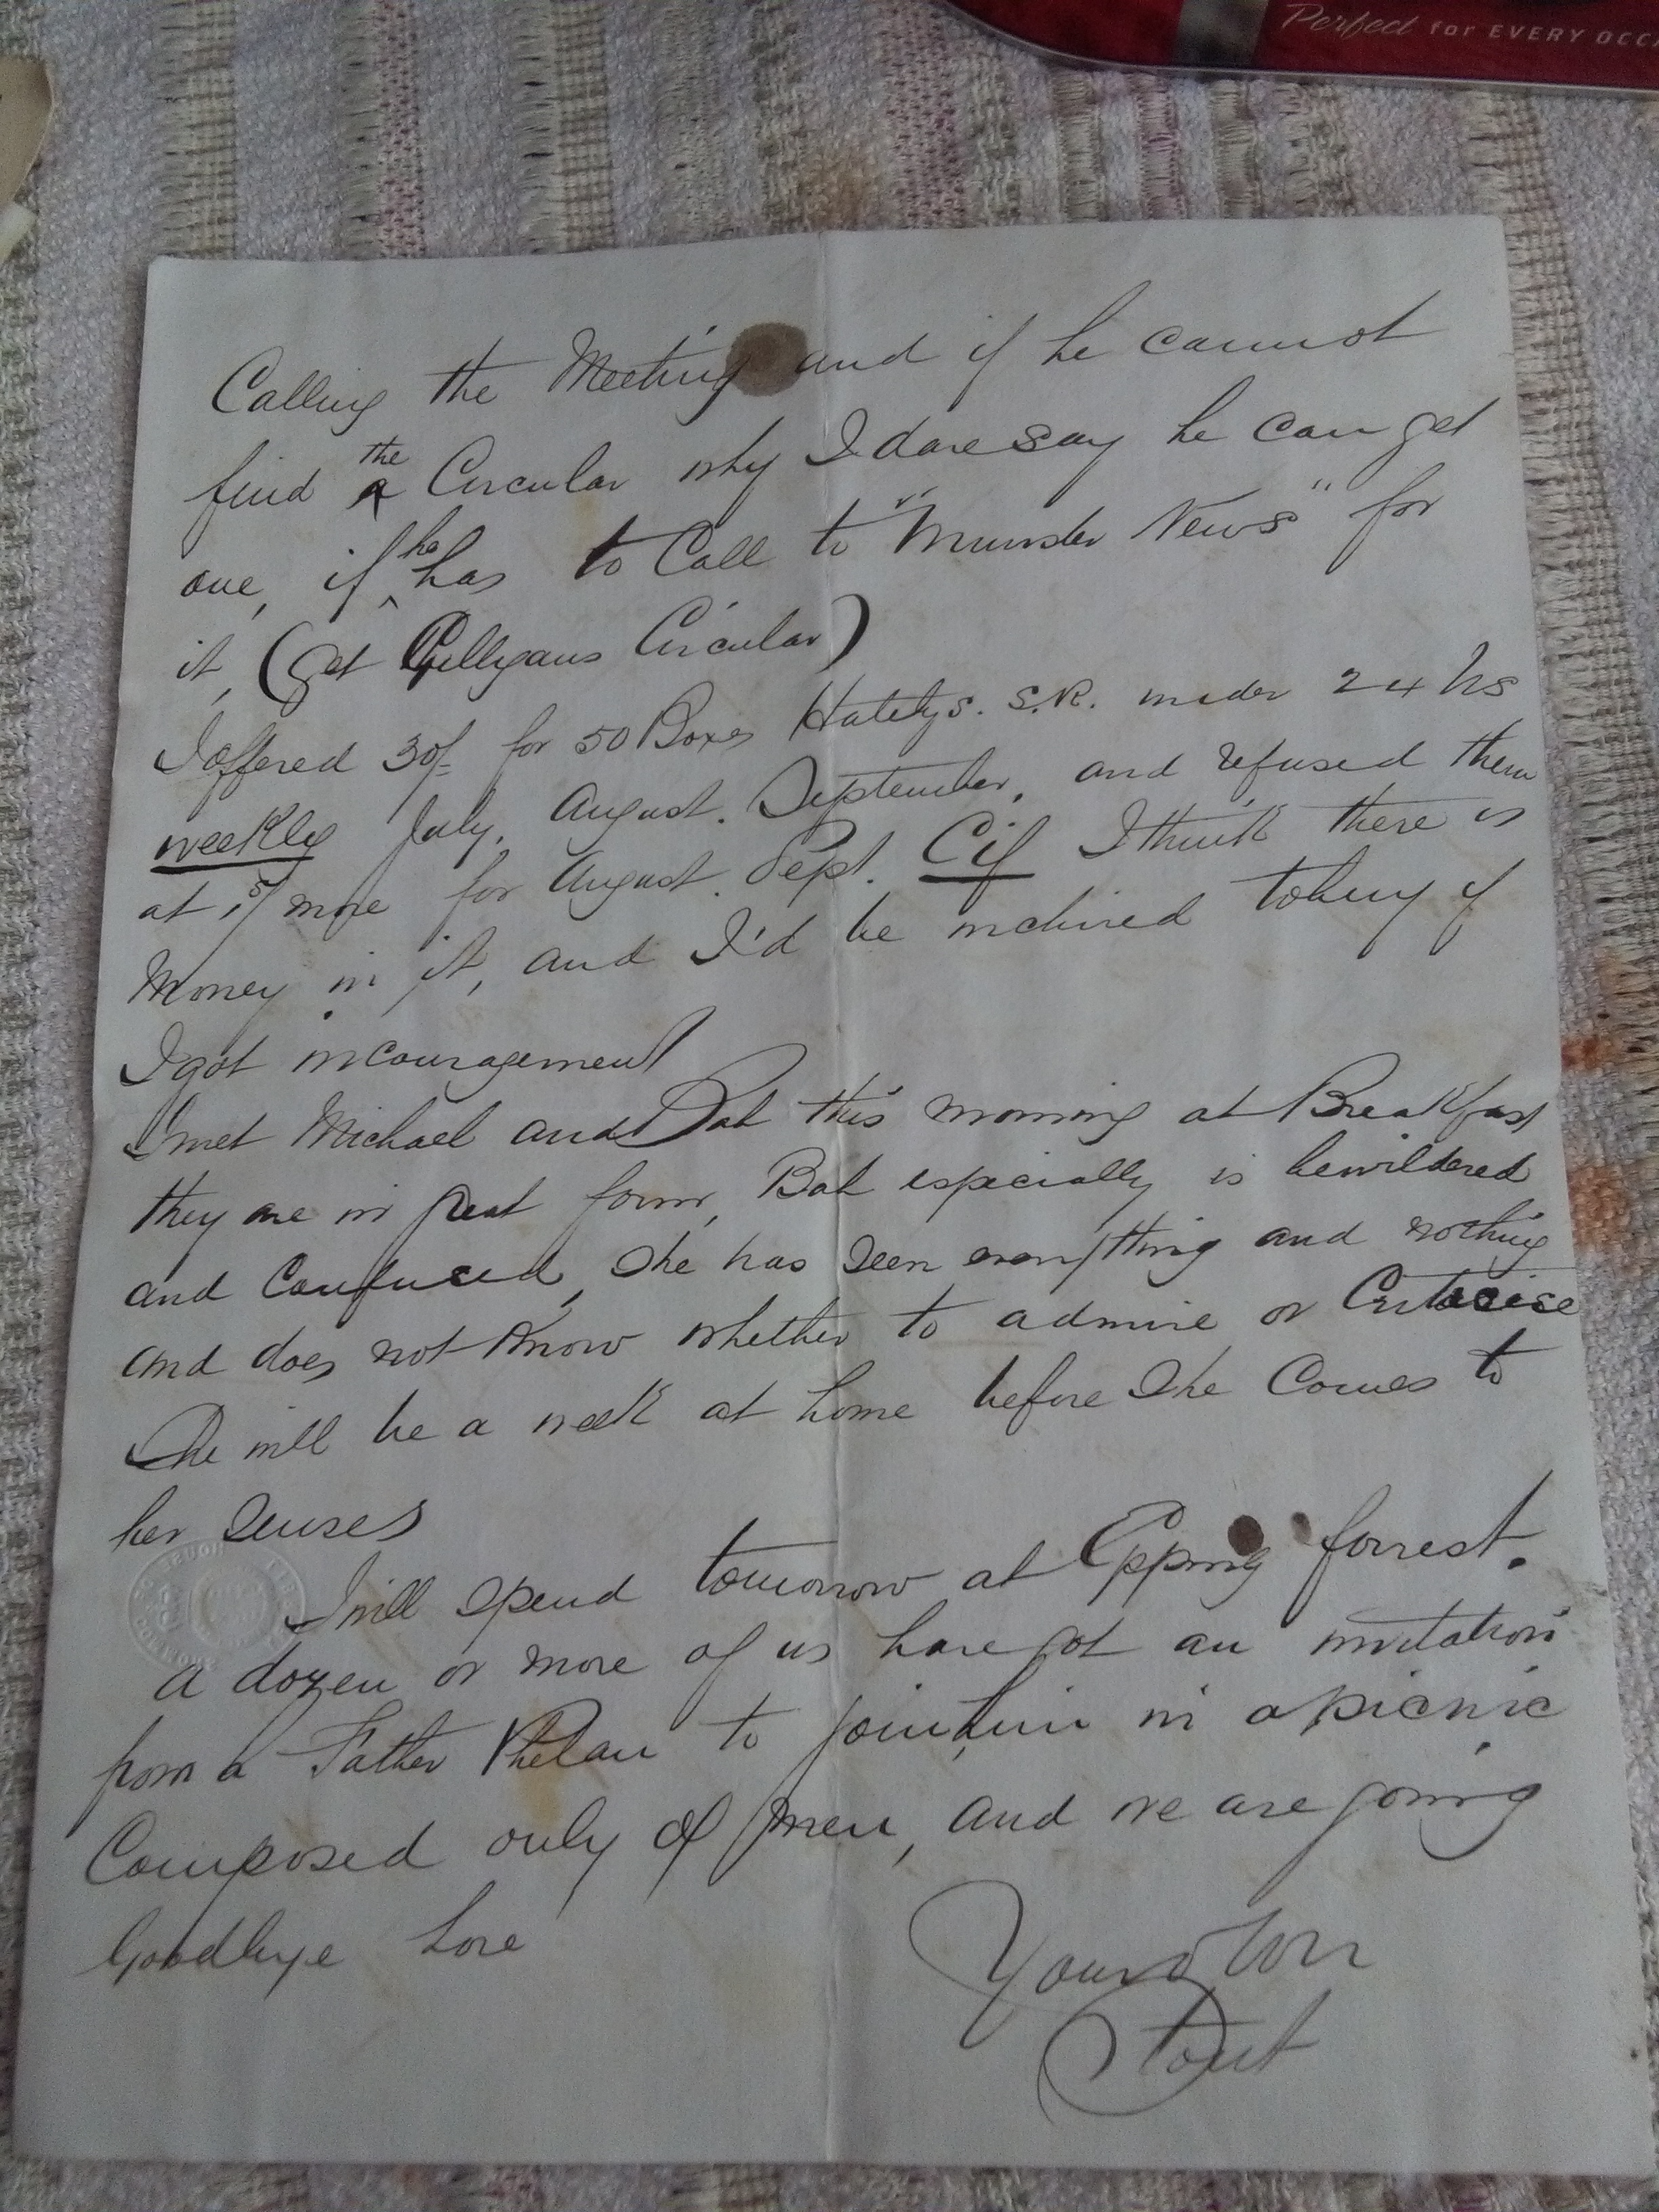 Perfect for EVERY OCC
Calling the Meeting and if he cannot
find the Circular why I dare say he can get
one, if he has to Call to "Munster News" for
it, (get Gilligans Circular)
I offered 30/- for 50 Boxes Hatelys. S.R. under 24 hs
weekly July. August. September, and refused them
at more for August. Sept. Cif I think there is
Money in it, and I'd be inclined to buy if
I got incouragement
I met Michael and Bab this morning at Breakfast
they are in great form, Bab especially is bewildered
and Confused, She has seen everything and nothing
and does not Know whether to admire or Criticise
She will be a week at home before She Comes to
her Senses
I will spend tomorrow at Epping forrest.
a dozen or more of us have got an invitation
from a Father Phelan to join him in a picnic
Composed only of men, and we are going
Goodbye love
Your own